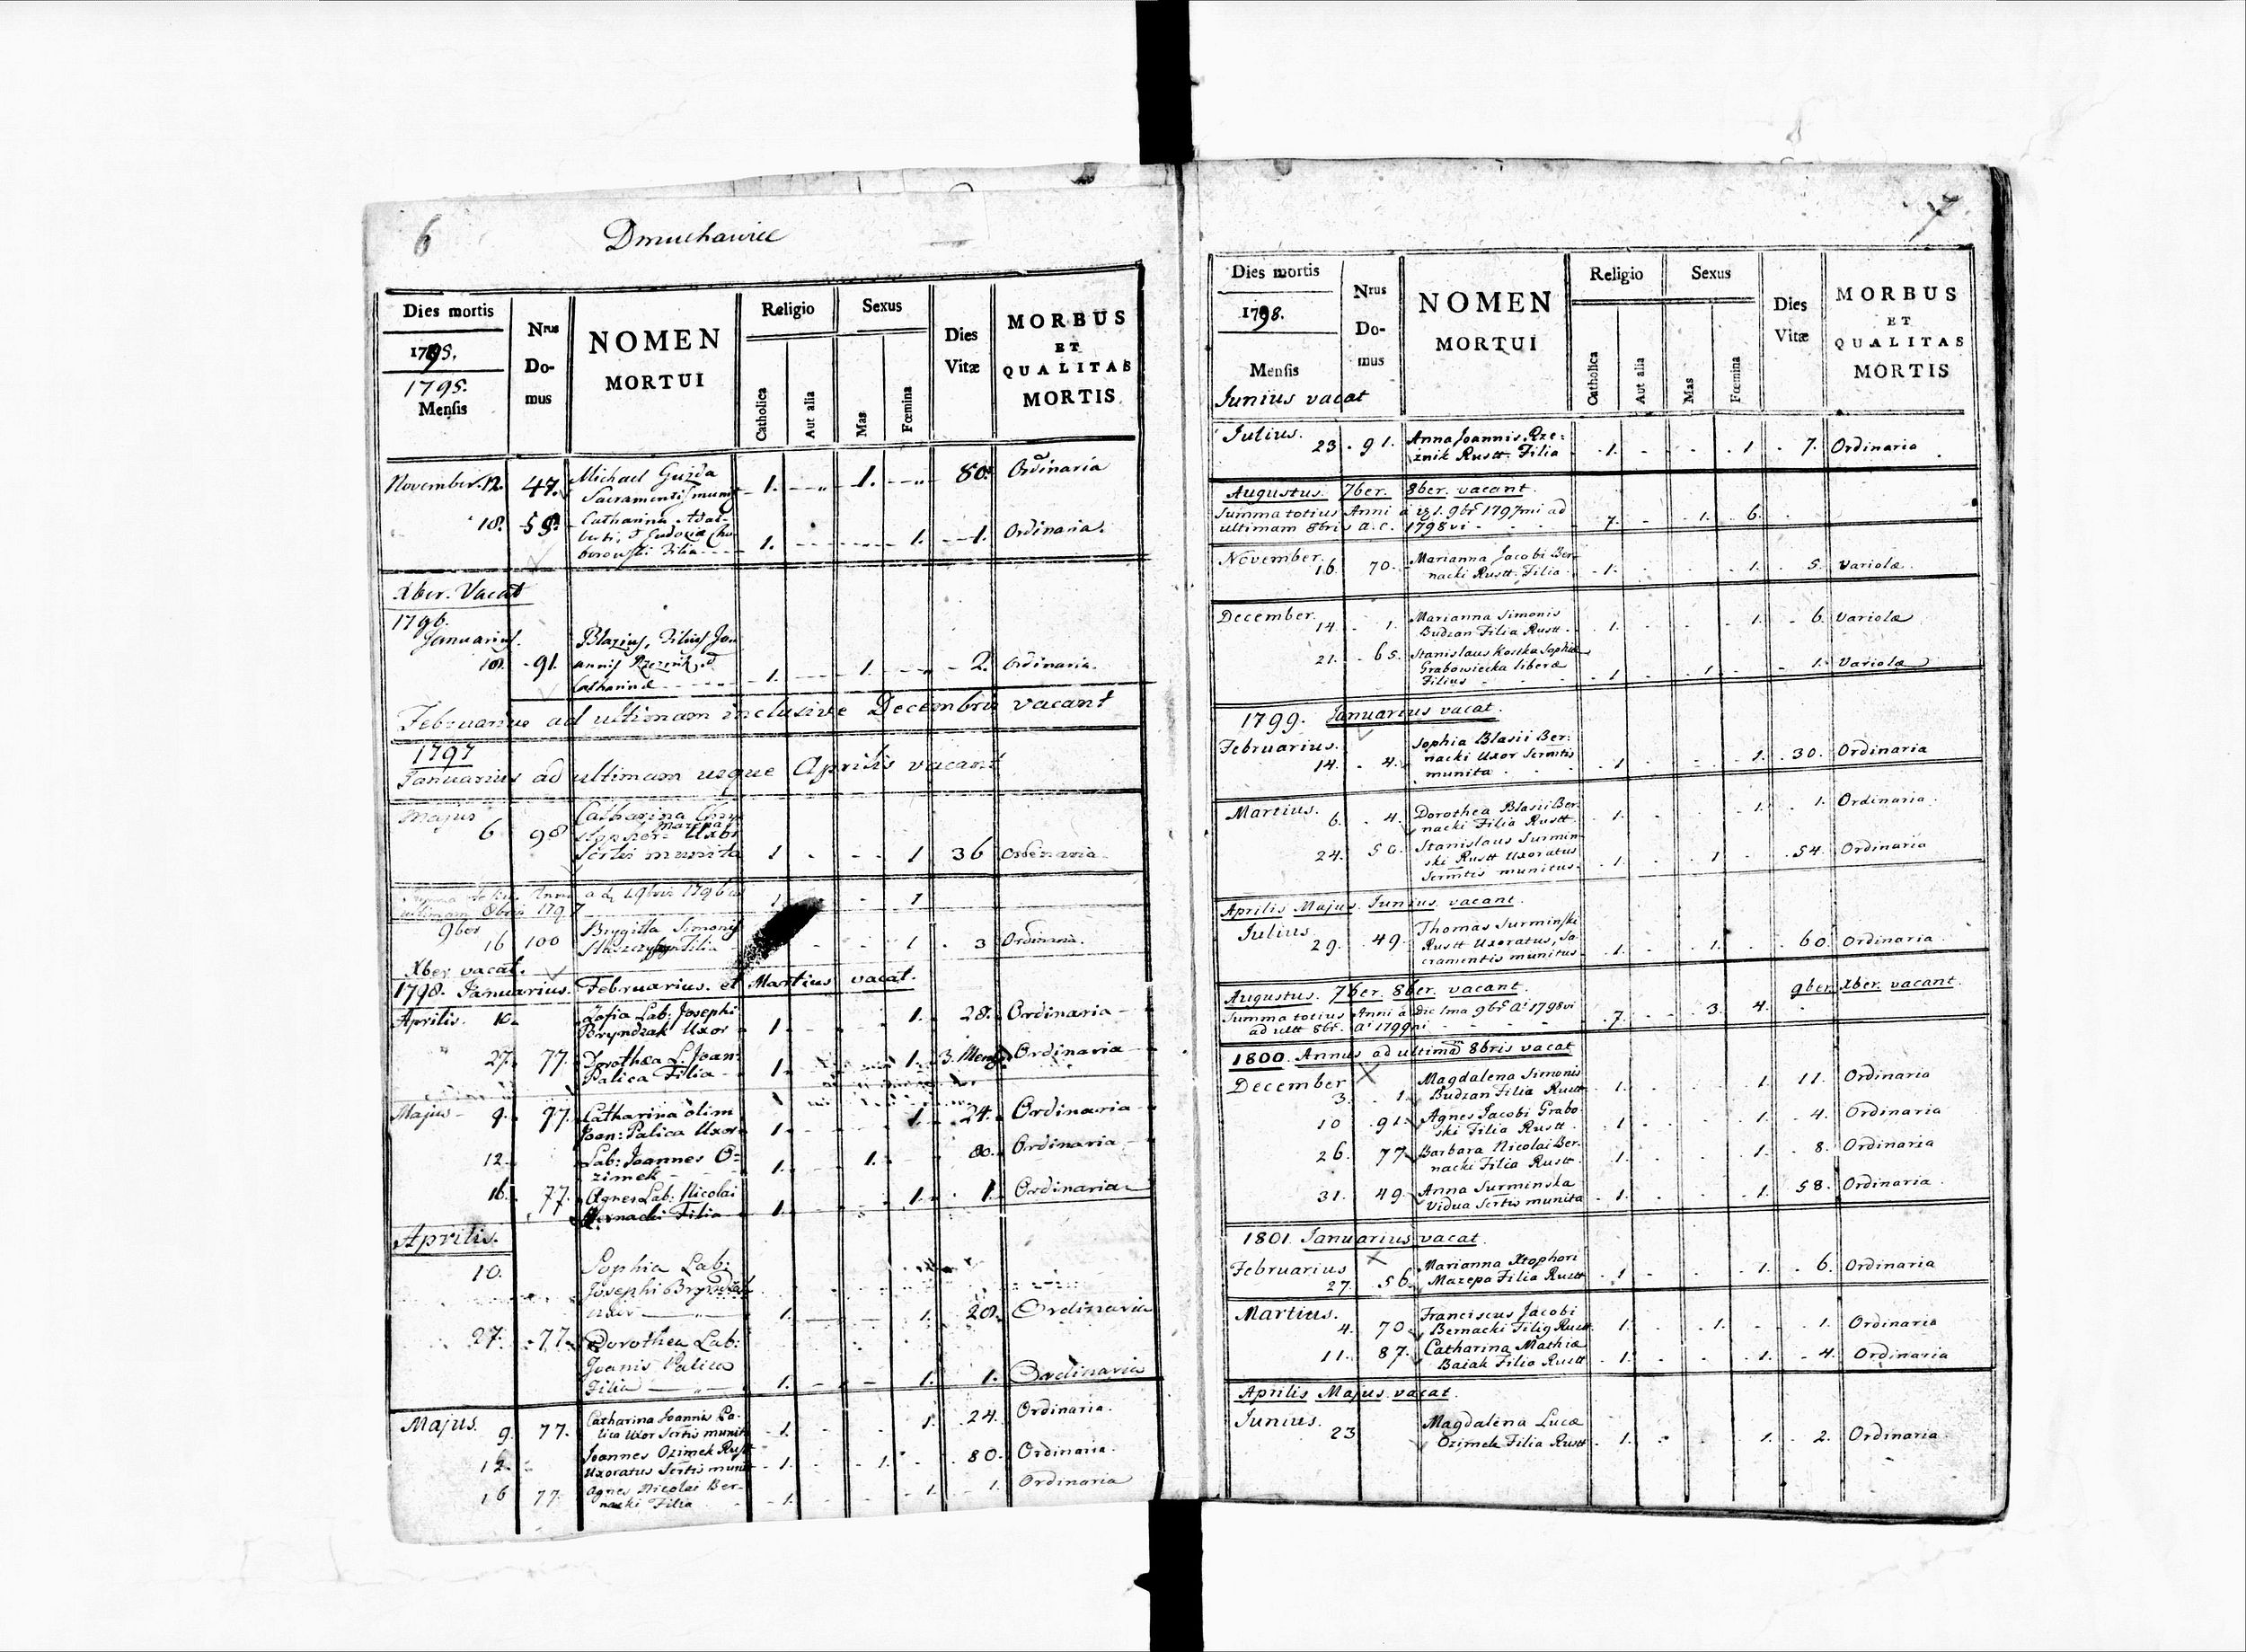 6
Dmuchawice
Dies mortis
1795.
1795.
Mensis
Nrus Do- mus
NOMEN
MORTUI
Religio
Catholica
Aut alia
Sexus
Mas
Fœmina
Dies
Vitæ
MORBUS
ET
QUALITAS
MORTIS
November. 12. 47. Michael Guzda 1. 1. 80. Ordinaria
Sacramentis munit
18. 59. Catharina Adal-
berti, & Eudoxia
Filia 1. 1. 1. Ordinaria.
Xber. Vacat
1796.
Januarius.
18. 91. Blazius, Filius Jo-
annis Rzeznik &
Catharinæ 1. 1. 2. Ordinaria.
Februarius ad ultimam inclusive Decembris vacant
1797
Januarius ad ultimam usque Aprilis vacant
Majus
6 98 Catharina
Mazepa Uxor
Scrtis munita 1 1 36 Ordinaria
ultimam 8bris 1797 1. 1
9ber
16 100 Brygitta Simonis
Filia 1 3 Ordinaria.
Xber vacat.
1798. Januarius. Februarius. et Martius vacat.
Aprilis. 10. Zofia Lab: Josephi
Bryndzak Uxor 1. 1. 28. Ordinaria
27. 77. Dorothea L: Joan:
Palica Filia 1. 1. 3. Mens. Ordinaria
Majus 9. 77. Catharina olim
Joan: Palica Uxor 1. 1. 24. Ordinaria
12. Lab: Joannes O=
zimek 1. 1. 80. Ordinaria
16. 77. Agnes Lab: Nicolai
Bernacki Filia 1. 1. 1. Ordinaria
Aprilis.
10. Sophia Lab:
Josephi Bryndzak
uxor 1. 1. 28. Ordinaria
27. 77. Dorothea Lab:
Joanis Palica
Filia 1. 1. 1. Ordinaria
Majus. 9. 77. Catharina Joannis Pa-
lica Uxor Scrtis munita 1. 1. 24. Ordinaria.
12. Joannes Ozimek Rust
Uxoratus Scrtis munit 1. 1. 80. Ordinaria.
16 77. Agnes Nicolai Ber-
nacki Filia 1. 1. 1. Ordinaria
7
Dies mortis
1798.
Mensis
Nrus Do- mus
NOMEN
MORTUI
Religio
Catholica
Aut alia
Sexus
Mas
Fœmina
Dies
Vitæ
MORBUS
ET
QUALITAS
MORTIS
Iunius vacat
Iulius. 23. 91. Anna Joannis Rze:
znik Rustt. Filia 1. 1 7. Ordinaria
Augustus. 7ber. 8ber. vacant.
Summa totius Anni a 1. 9br 1797mi ad
ultimam 8bris a. c. 1798vi 7. 1. 6.
November. 16. 70. Marianna Jacobi Ber
nacki Rustt. Filia 1. 1. 5. Variolæ.
December. 14. 1. Marianna Simonis
Budzan Filia Rustt. 1. 1. 6. Variolæ
21. 65. Stanislaus Kostka Sophiæ
Grabowiecka liberæ
Filius 1 1. 1. Variolæ
1799. Ianuarius vacat.
Februarius. 14. 4. Sophia Blasii Ber:
nacki Uxor Scrmtis
munita 1 1. 30. Ordinaria
Martius. 6. 4. Dorothea Blasii Ber:
nacki Filia Rustt. 1. 1. 1. Ordinaria.
24. Stanislaus Surmin
ski Rustt Uxoratus
Scrmtis munitus. 1. 1 54. Ordinaria
Aprilis Majus. Iunius. vacant.
Iulius. 29. 49. Thomas Surminski
Rustt Uxoratus, Sa
cramentis munitus. 1. 1. 60. Ordinaria.
Augustus. 7ber. 8ber. vacant. 9ber. Xber. vacant.
Summa totius Anni a Die 1ma 9br Ai 1798vi
ad ultt 8br. Ai 1799ni 7. 3. 4.
1800. Annus ad ultimã 8bris vacat
December 3. 1. Magdalena Simonis
Budzan Filia Rustt. 1. 1. 11. Ordinaria
10 91. Agnes Jacobi Grabo
ski Filia Rustt. 1 1. 4. Ordinaria
26. 77. Barbara Nicolai Ber.
nacki Filia Rustt. 1. 1. 8. Ordinaria
31. 49. Anna Surminska
Vidua Scrtis munita 1. 1. 58. Ordinaria.
1801. Ianuarius vacat.
Februarius 27. 56. Marianna Xtophori
Mazepa Filia Rustt 1 1. 6. Ordinaria
Martius. 4. 70. Franciscus Jacobi
Bernacki Filig Rustt. 1. 1. 1. Ordinaria
11. 87. Catharina Mathiæ
Baiak Filia Rustt 1. 1. 4. Ordinaria
Aprilis Majus. vacat.
Iunius. 23 Magdalena Lucæ
Ozimek Filia Rustt. 1. 1. 2. Ordinaria.